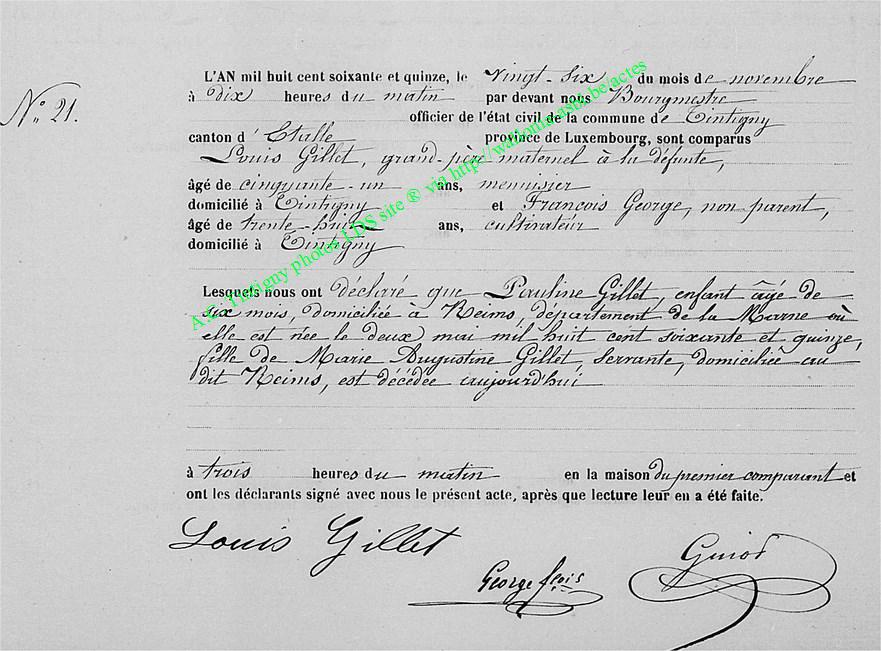 N° 21.
L'AN mil huit cent soixante et quinze, le vingt-six du mois de novembre
à dix heures du matin par devant nous Bourgmestre
officier de l'état civil de la commune de Tintigny
canton d'Etalle province de Luxembourg, sont comparus
Louis Gillet, grand-père maternel à la défunte,
âgé de cinquante-un ans, menuisier
domicilié à Tintigny et François George, non parent,
âgé de trente-huit ans, cultivateur
domicilié à Tintigny
Lesquels nous ont déclaré que Pauline Gillet, enfant âgé de
six mois, domiciliée à Reims, département de la Marne où
elle est née le deux mai mil huit cent soixante et quinze,
fille de Marie Augustine Gillet, servante, domiciliée au
dit Reims, est décédée aujourd'hui
à trois heures du matin en la maison du premier comparant et
ont les déclarants signé avec nous le présent acte, après que lecture leur en a été faite.
Louis Gillet
George fçois
A.C. Tintigny photos LDS site ® via http://wallonia.asbl.be/actes